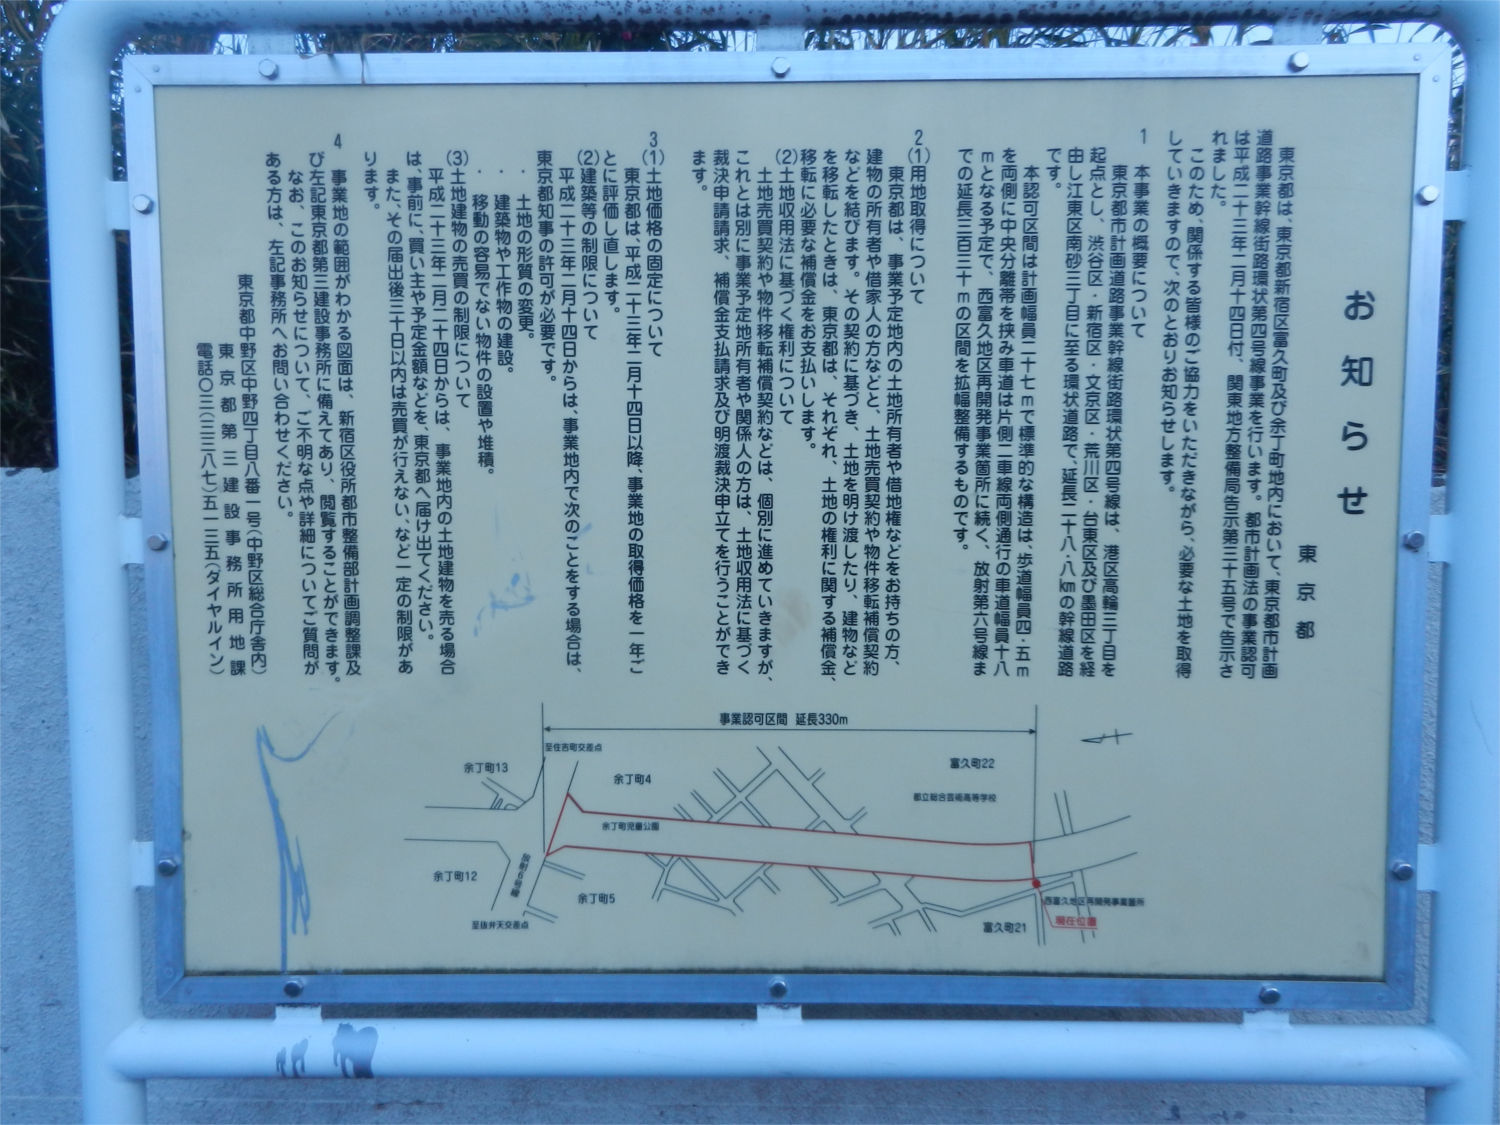 お知らせ
東京都
東京都は、東京都新宿区富久町及び余丁町地内において、東京都市計画
道路事業幹線街路環状第四号線事業を行います。都市計画法の事業認可
は平成二十三年二月十四日付、関東地方整備局告示第三十五号で告示さ
れました。
このため、関係する皆様のご協力をいただきながら、必要な土地を取得
していきますので、次のとおりお知らせします。
1 本事業の概要について
東京都市計画道路事業幹線街路環状第四号線は、港区高輪三丁目を
起点とし、渋谷区・新宿区・文京区・荒川区・台東区及び墨田区を経
由し江東区南砂三丁目に至る環状道路で、延長二十八・八kmの幹線道路
です。
本認可区間は計画幅員二十七mで標準的な構造は、歩道幅員四・五m
を両側に中央分離帯を挟み車道は片側二車線両側通行の車道幅員十八
mとなる予定で、西富久地区再開発事業箇所に続く、放射第六号線ま
での延長三百三十mの区間を拡幅整備するものです。
2
(1)用地取得について
東京都は、事業予定地内の土地所有者や借地権などをお持ちの方、
建物の所有者や借家人の方などと、土地売買契約や物件移転補償契約
などを結びます。その契約に基づき、土地を明け渡したり、建物など
を移転したときは、東京都は、それぞれ、土地の権利に関する補償金、
移転に必要な補償金をお支払いします。
(2)土地収用法に基づく権利について
土地売買契約や物件移転補償契約などは、個別に進めていきますが、
これとは別に事業予定地所有者や関係人の方は、土地収用法に基づく
裁決申請請求、補償金支払請求及び明渡裁決申立てを行うことができ
ます。
3
(1)土地価格の固定について
東京都は、平成二十三年二月十四日以降、事業地の取得価格を一年ご
とに評価し直します。
(2)建築等の制限について
平成二十三年二月十四日からは、事業地内で次のことをする場合は、
東京都知事の許可が必要です。
・ 土地の形質の変更。
・ 建築物や工作物の建設。
・ 移動の容易でない物件の設置や堆積。
(3)土地建物の売買の制限について
平成二十三年二月二十四日からは、事業地内の土地建物を売る場合
は、事前に、買い主や予定金額などを、東京都へ届け出てください。
また、その届出後三十日以内は売買が行えない、など一定の制限があ
ります。
4
事業地の範囲がわかる図面は、新宿区役所都市整備部計画調整課及
び左記東京都第三建設事務所に備えてあり、閲覧することができます。
なお、このお知らせについて、ご不明な点や詳細についてご質問が
ある方は、左記事務所へお問い合わせください。
東京都中野区中野四丁目八番一号(中野区総合庁舎内)
東京都第三建設事務所用地課
電話〇三(三三八七)五一三五(ダイヤルイン)
事業認可区間 延長330m
至住吉町交差点
余丁町13
余丁町4
富久町22
都立総合芸術高等学校
余丁町児童公園
放射6号線
余丁町12
余丁町5
至抜弁天交差点
西富久地区再開発事業箇所
現在位置
富久町21